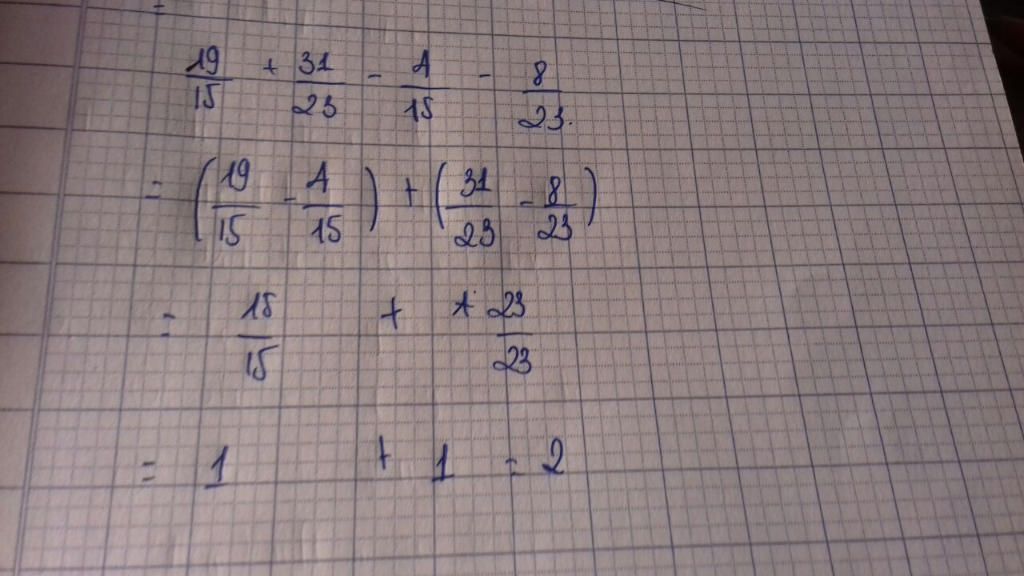 19/15 + 31/23 - 1/15 - 8/23
= (19/15 - 1/15) + (31/23 - 8/23)
= 15/15 + 23/23
= 1 + 1 = 2